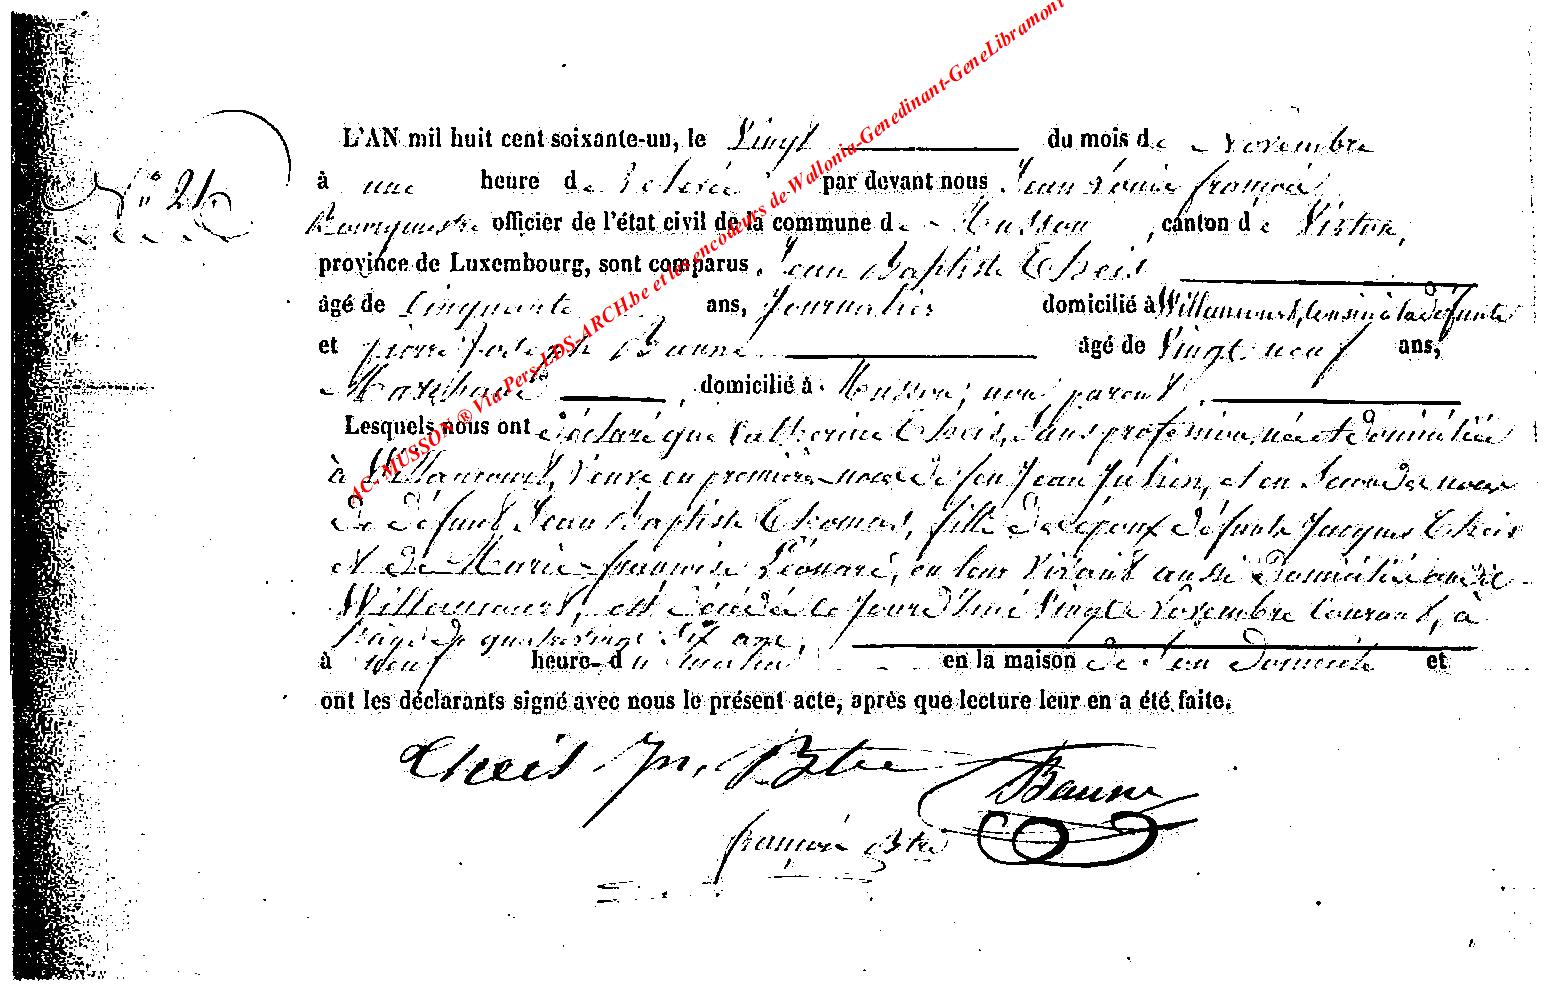 L'AN mil huit cent soixante-un, le Vingt du mois de Novembre
N° 24
à une heure de Relevée par devant nous Jean Louis françois,
Bourgmestre officier de l'état civil de la commune de Musson, canton de Virton,
province de Luxembourg, sont comparus Jean Baptiste Theis
âgé de Cinquante ans, Journalier domicilié à Willancourt, Cousin à la défunte
et pierre Joseph Baune âgé de Vingt neuf ans,
Maréchal domicilié à Musson; non parent,
Lesquels nous ont déclaré que Catherine Theis, Sans profession, née et domiciliée
à Willancourt, Veuve en premières noces de feu Jean Julien, et en Secondes noces
de défunt Jean Baptiste Thomas, fille des époux défunts Jacques Theis
et de Marie-françoise Léonard, en leur Vivant aussi domiciliés audit
Willancourt, est décédée le Jourd'hui Vingt Novembre Courant, à
l'âge de quatrevingt dix ans,
à neuf heure du matin en la maison de Son Domicile et
ont les déclarants signé avec nous le présent acte, après que lecture leur en a été faite.
Theis Jn. Bte Baune
françois Bte
AC-MUSSON ® Via Pers-LDS-ARCH.be et les encodeurs de Wallonia-Genedinant-GeneLibramont